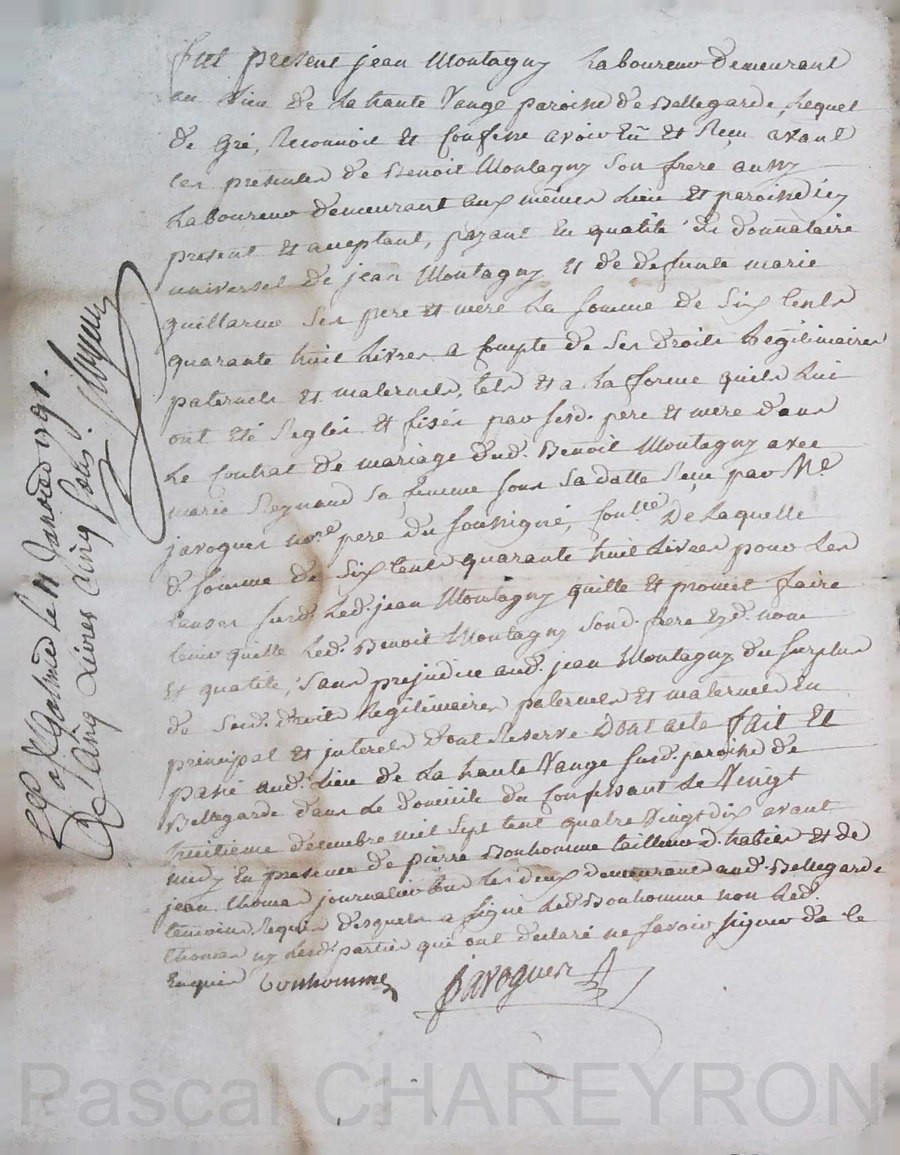 fut present jean Montagny Laboureur demeurant
au lieu de La haute Vange paroisse de Bellegarde, Lequel
de gré, Reconnoit et Confesse avoir Eu et Reçu avant
les presentes de Benoit Montagny son frere aussy
Laboureur demeurant aux mêmes Lieu et paroisse icy
present et acceptant, payant En qualité de donnataire
universel de jean Montagny et de defunte marie
guillarme ses pere et mere La somme de six Cents
quarante huit Livres a Compte de ses droits Legitimaires
paternels et maternels, tels et a La forme quils Lui
ont été Reglés et fixés par sesd. pere et mere dans
Le Contrat de mariage dud. Benoit Montagny avec
marie Reynaud sa femme sous sa datte Reçu par Me
javogues nore pere du soussigné, De Laquelle
d. somme de six Cents quarante huit Livres pour Les
Causes susd. Led. jean Montagny quitte et promet faire
tenir quitte Led. Benoit Montagny sond. frere Esd. nom
et qualité, sans prejudice aud. jean Montagny du surplus
de sesd. droits Legitimaires paternels et maternels En
principal et interets dont Reserve Dont acte fait et
passé aud. Lieu de La haute Vange susd. paroisse de
Bellegarde dans Le domicile du Confessant Le Vingt
huitième decembre mil sept cent quatre Vingt dix avant
midy En presence de pierre Bonhomme tailleur d'habits et de
jean thomas journalier tous les deux demeurant aud. Bellegarde
temoins Requis desquels a signé Led. Bonhomme non Led.
thomas ny Lesd. parties qui ont declaré ne savoir signer de ce
Enquis bonhomme
javogues
à St Galmier le 11 Janvier 1791.
Cinq Livres cinq sous.
Pascal CHAREYRON